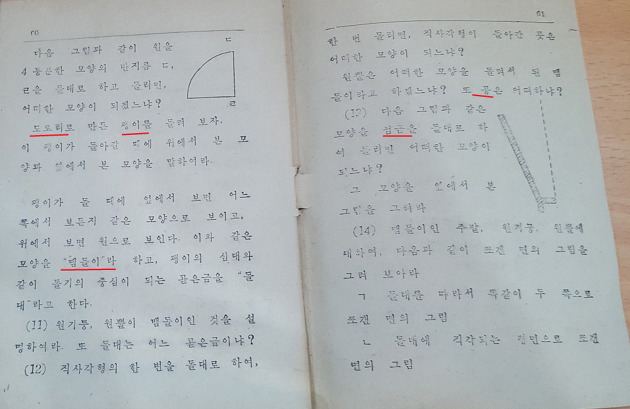 60
다음 그림과 같이 원을
4 등분한 모양의 반지름 ㄷ,
ㄹ을 돌대로 하고 돌리면,
어떠한 모양이 되겠느냐?
도토리로 만든 팽이를 돌려 보자.
이 팽이가 돌아갈 때에 위에서 본 모
양과 옆에서 본 모양을 말하여라.
팽이가 돌 때에 옆에서 보면 어느
쪽에서 보든지 같은 모양으로 보이고,
위에서 보면 원으로 보인다. 이와 같은
모양을 "맴돌이"라 하고, 팽이의 심대와
같이 돌기의 중심이 되는 곧은금을 "돌
대"라고 한다.
(11) 원기둥, 원뿔이 맴돌이인 것을 설
명하여라. 또 돌대는 어느 곧은금이냐?
(12) 직사각형의 한 변을 돌대로 하여,
ㄷ
ㄹ
61
한 번 돌리면, 직사각형이 돌아간 곳은
어떠한 모양이 되느냐?
원뿔은 어떠한 모양을 돌려서 된 맴
돌이라고 하겠느냐? 또 공은 어떠하냐?
(13) 다음 그림과 같은
모양을 점금을 돌대로 하
여 돌리면 어떠한 모양이
되느냐?
그 모양을 옆에서 본
그림을 그려라
(14) 맴돌이인 주발, 원기둥, 원뿔에
대하여, 다음과 같이 쪼갠 면의 그림을
그려 보아라
ㄱ 돌대를 따라서 똑같이 두 쪽으로
쪼갠 면의 그림
ㄴ 돌대에 직각되는 평면으로 쪼갠
면의 그림